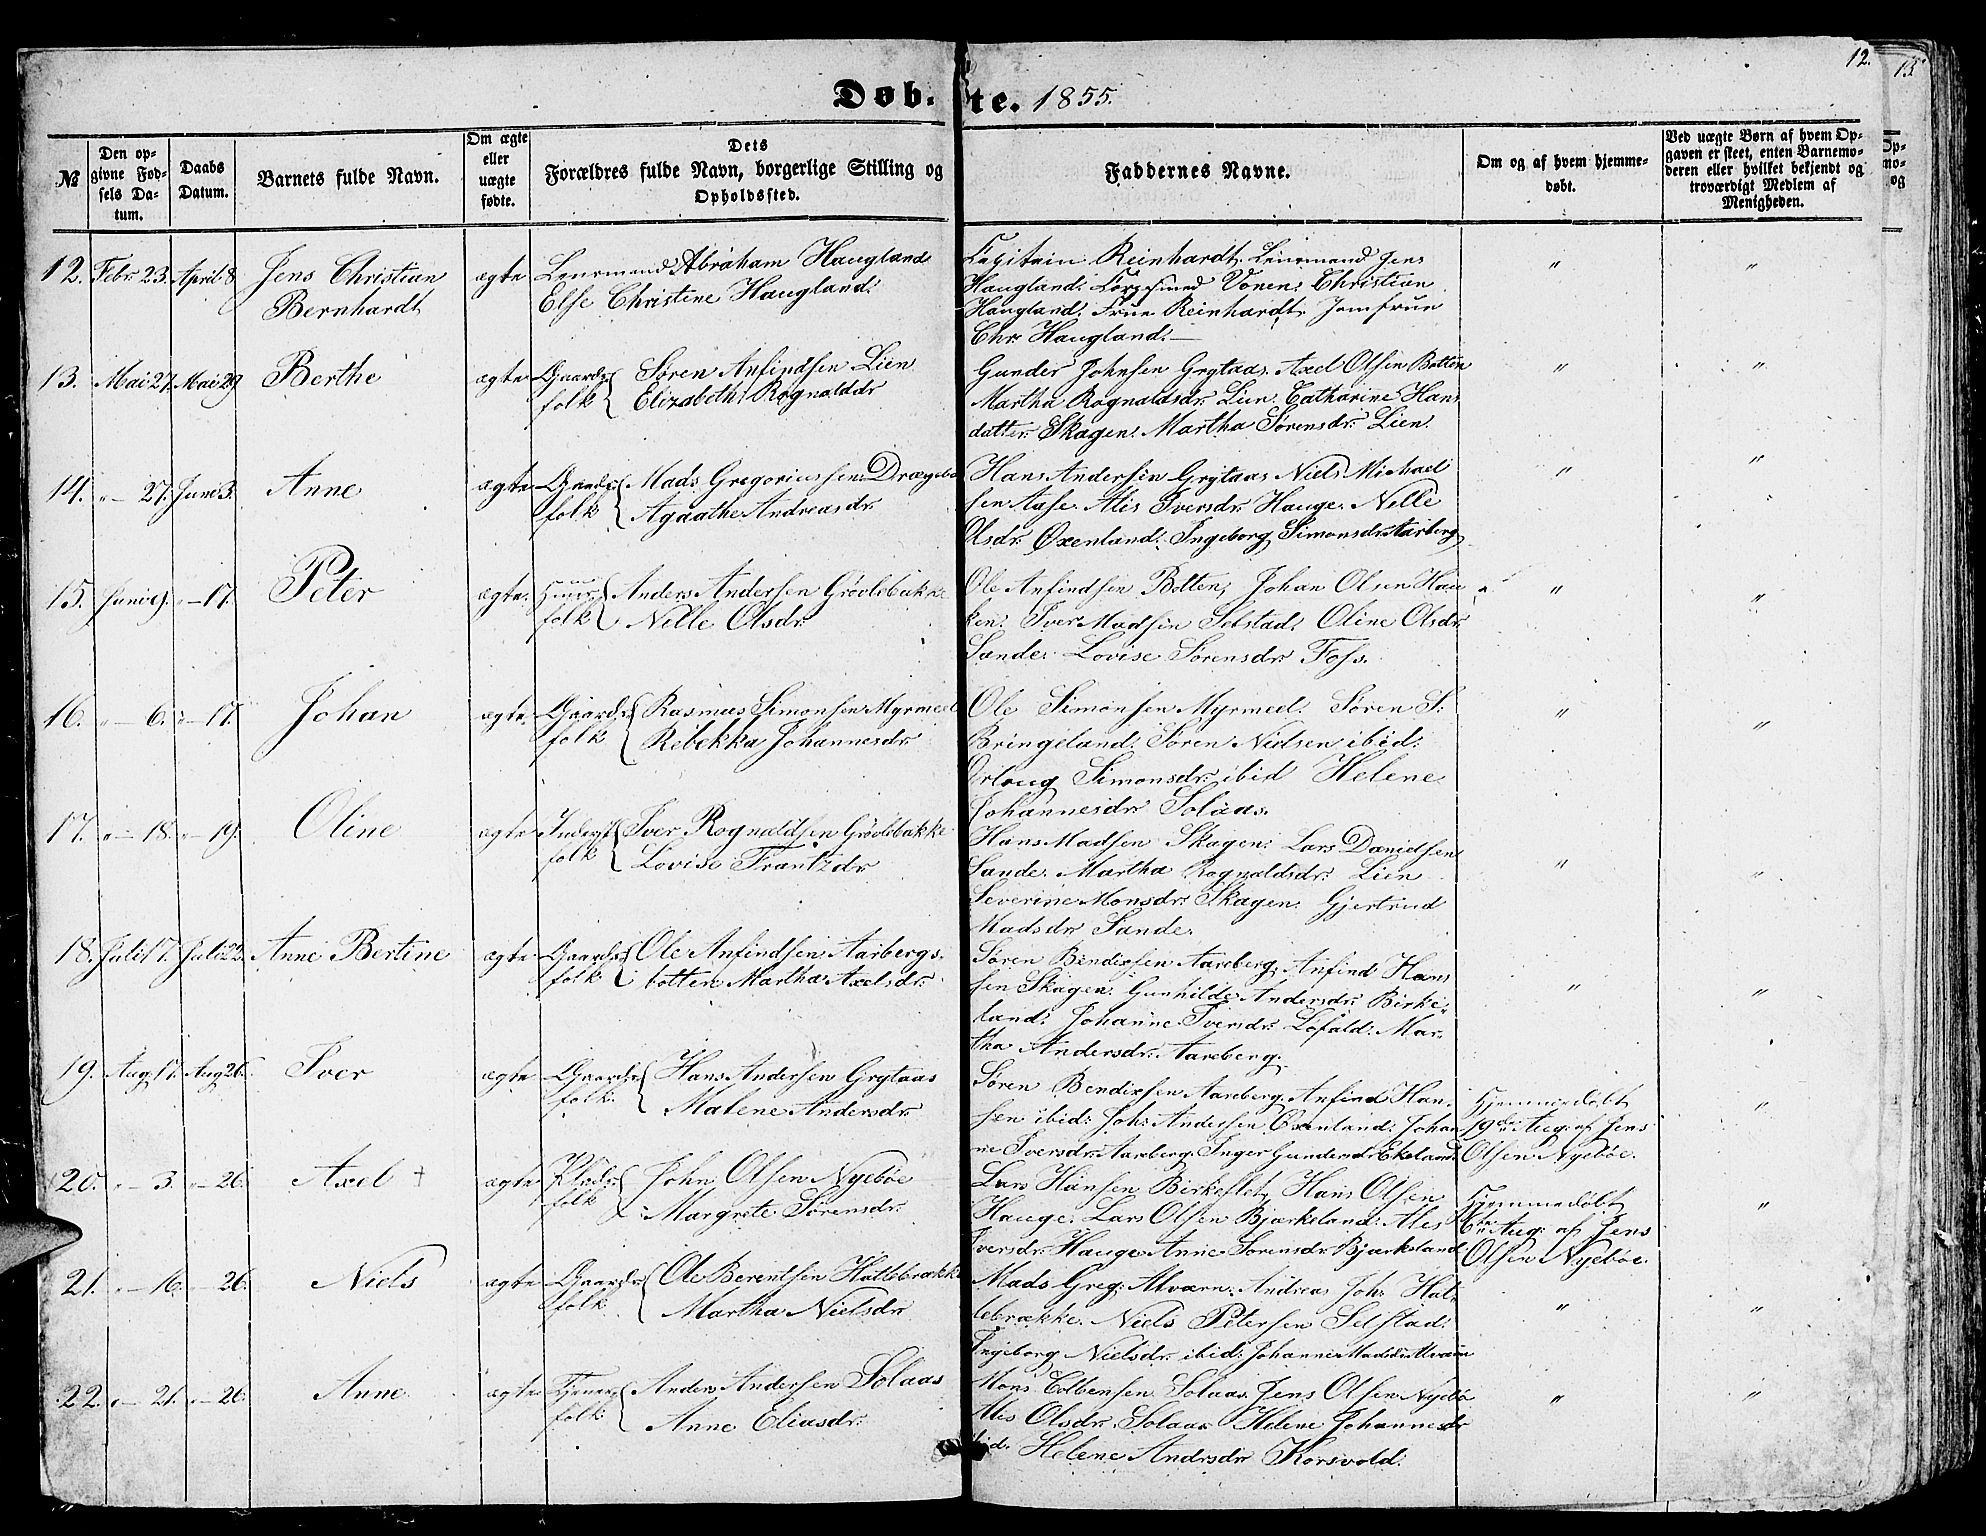 12.
15
Døbte. 1855.
№
Den opgivne Fødsels Datum.
Daabs Datum.
Barnets fulde Navn.
Om ægte eller uægte fødte.
Dets Forældres fulde Navn, borgerlige Stilling og Opholdssted.
Faddernes Navne.
Om og af hvem hjemmedøbt.
Ved uægte Børn af hvem Opgaven er skeet, enten Barnemoderen eller hvilket bekjendt og troværdigt Medlem af Menigheden.
Op-
mo-
og
12. Febr. 23. April 8 Jens Christian
Bernhardt
ægte Lensmand Abraham Haugland
Else Christine Haugland.
Capitain Reinhardt. Lensmand Jens
Haugland. Vonen. Christian
Haugland. Frue Reinhardt. Jomfrue
Chr. Haugland.
" "
13. Mai 27. Mai 29 Berthe
ægte Gaard-
folk
Søren Anfindsen Lien
Elizabeth Rognaldsdr
Gunder Johnsen Grytaas. Axel Olsen Botten
Martha Rognaldsdr. Lien. Catharine Hans
datter Skagen. Martha Sørensdr. Lien.
" "
14. "— 27. Juni 3. Anne
ægte Gaard-
folk
Mads Gregoriussen Drægebø
Agaathe Andreasdr.
Hans Andersen Grytaas Niels Michael
sen Aase. Alis Iversdr. Hauge. Nelle
Olsdr. Oxenland. Ingeborg Simonsdr. Aarberg
" "
15. Juni 9. "—17. Peter
ægte. Huus-
folk
Anders Andersen Grövlebakke
Nelle Olsdr.
Ole Anfindsen Botten, Johan Olsen Hau
ken. Iver Madsen Selstad. Oline Olsdr
Sande. Lovise Sørensdr. Foss.
" "
16. "— 6. "—17. Johan
ægte. Gaard-
folk
Rasmus Simonsen Myrmeel
Rebekka Johannesdr
Ole Simonsen Myrmeel. Søren S.
Bringeland. Søren Nielsen ibid.
Orloug Simonsdr. ibid Helene
Johannesdr Solaas.
" "
17. "— 18. "— 19. Oline
ægte Inderst-
folk
Iver Rognaldsen Grövlebakke
Lovise Frantzdr
Hans Madsen Skagen. Lars Danielsen
Sande. Martha Rognaldsdr. Lien
Severine Monsdr. Skagen. Gjertrud
Madsdr. Sande.
" "
18. Juli 17. Juli 22. Anne Bertine
ægte Gaards-
folk
Ole Anfindsen Aarbergs-
botten Martha Axelsdr.
Søren Bendixsen Aareberg. Anfind Han
sen Skagen. Gunhilde Andersdr. Birke-
land. Johanne Iversdr. Lofald. Mar-
tha Andersdr. Aareberg.
" "
19. Aug. 17. Aug. 26. Iver
ægte Gaards-
folk
Hans Andersen Grytaas
Malene Andersdr.
Søren Bendixsen Aareberg. Anfind Han-
sen ibid. Joh. Andersen Oxenland. Johan
ne Iversdr. Aareberg. Inger Gundersdr Ekeland.
Hjemmedøbt
19de Aug. af Jens
Olsen Nyebøe.
"
20. "— 3. "— 26. Axel +
ægte Plads-
folk
John Olsen Nyebøe
Margrete Sørensdr.
Lars Hansen Birkeflet. Hans Olsen
Hauge. Lars Olsen Bjørkeland. Alis
Iversdr. Hauge. Anne Sørensdr. Bjørkeland
Hjemmedøbt
6te Aug. af Jens
Olsen Nyebøe.
"
21. "— 16. "— 26. Niels
ægte Gaards-
folk
Ole Berentsen Hatlebrække
Martha Nielsdr.
Mads Greg. Alværn. Andreas Joh. Hat-
lebrække. Niels Petersen Selstad.
Ingeborg Nielsdr. ibid. Johanne Madsdr. Alværn
" "
22. "— 21. "— 26. Anne
ægte Tjener-
folk
Anders Andersen Solaas
Anne Eliasdr.
Mons Colbensen Solaas. Jens Olsen Nyebø
Alis Olsdr. Solaas Helene Johannesdr
ibid. Helene Andrsdr Korsvold.
" "